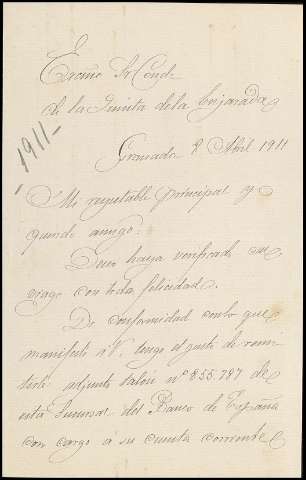 Excmo Sr Conde
de la Quinta de la Enjarada
1911-
Granada 8 Abril 1911
Mi respetable principal y
querido amigo:
Que haya verificado su
viage con toda felicidad.
De conformidad con lo que
manifesté á V. tengo el gusto de remi-
tirle adjunto talón nº 855.797 de
esta Sucursal del Banco de España
con cargo a su cuenta corriente